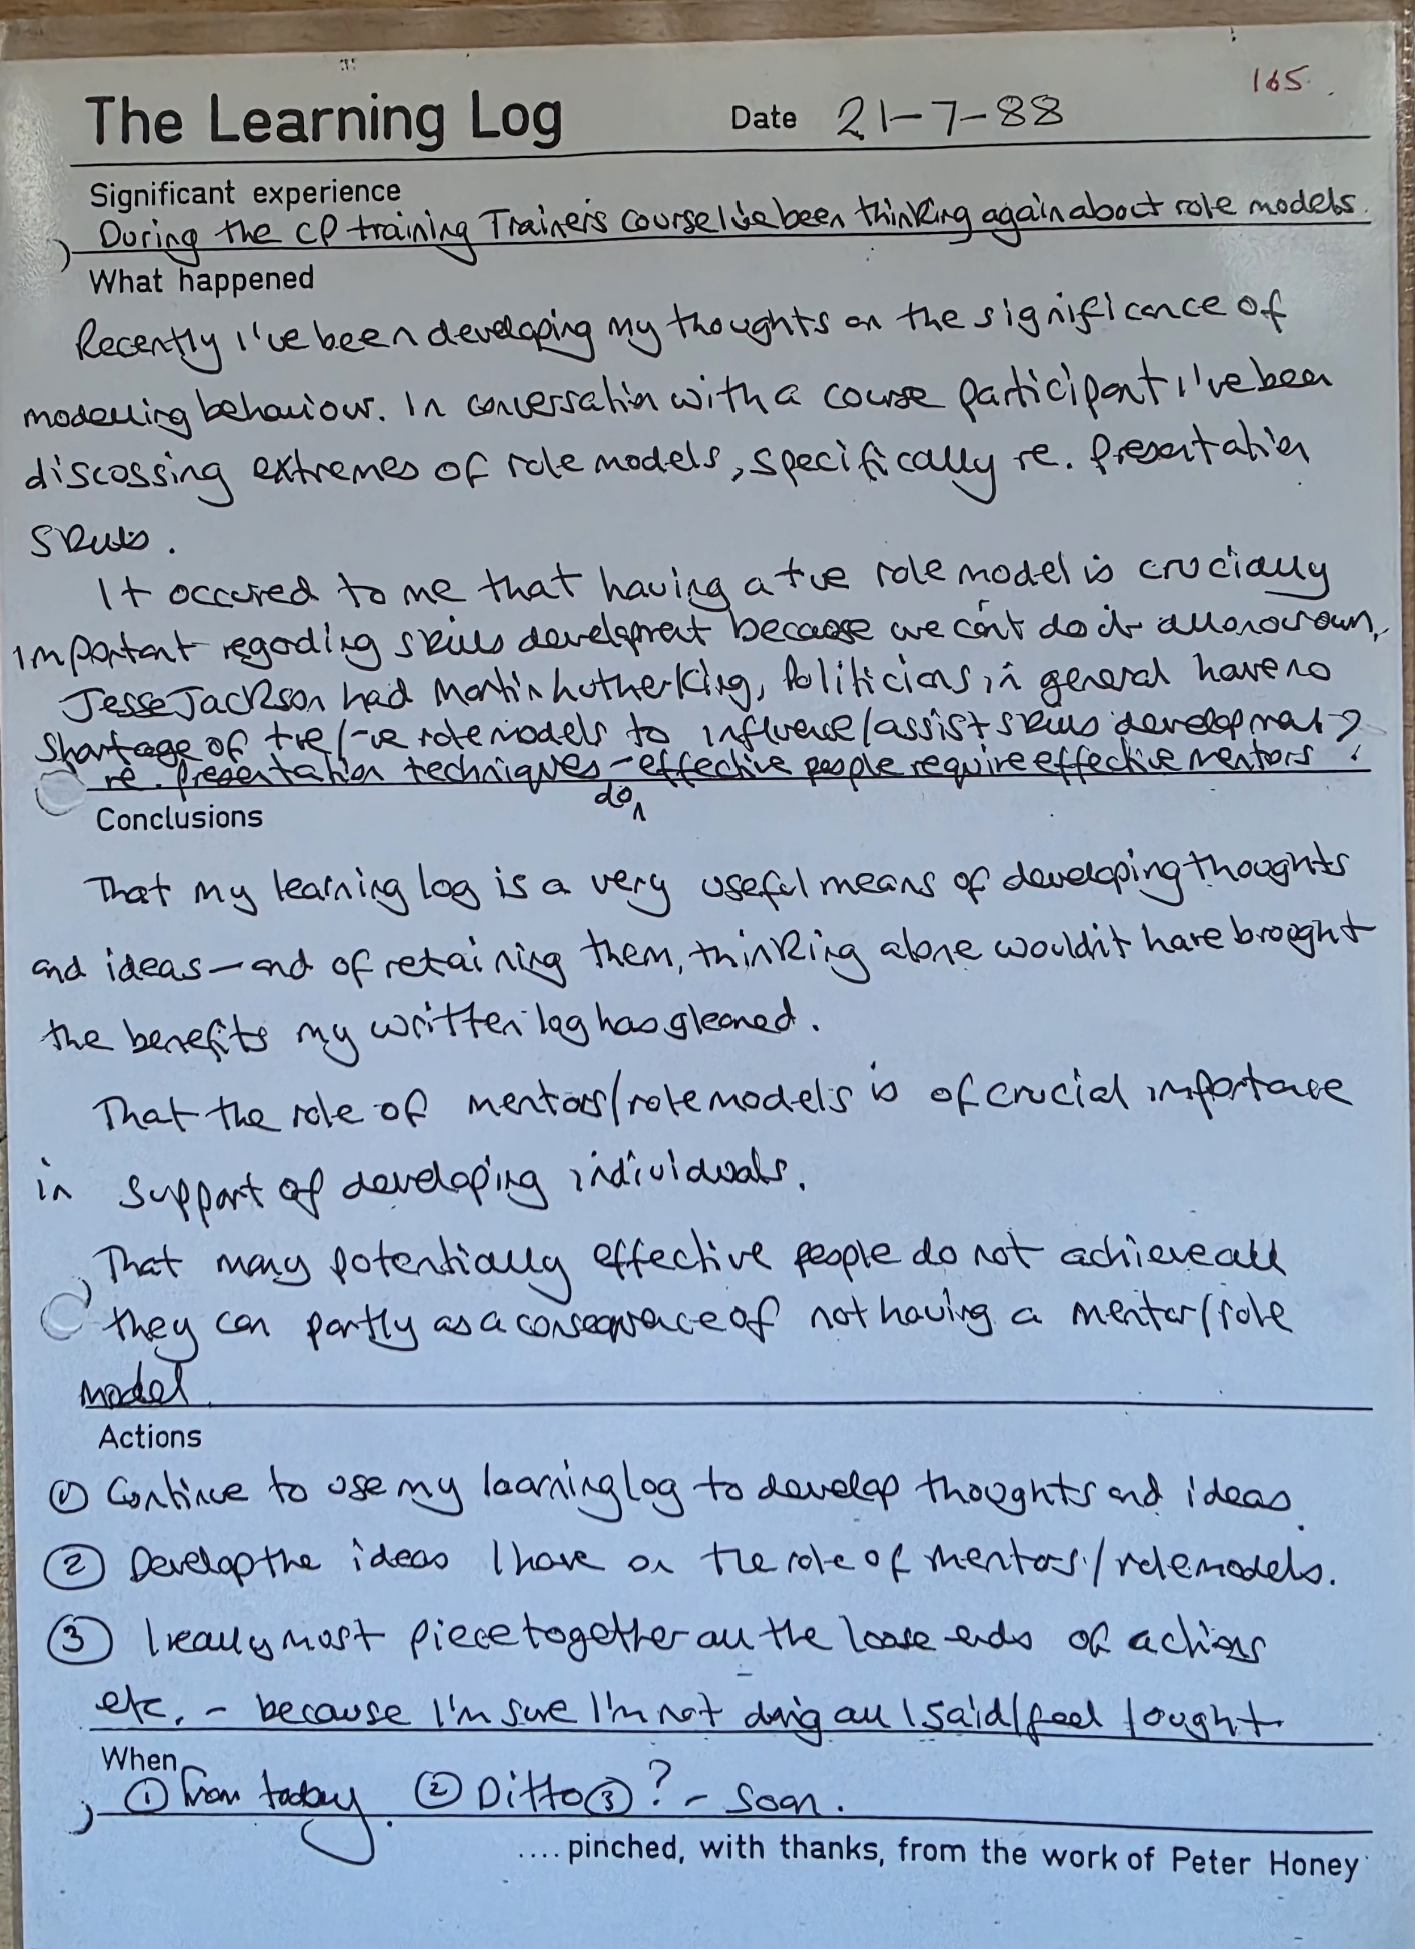 165.
The Learning Log Date 21-7-88
Significant experience
During the CP training Trainers course I've been thinking again about role models.
What happened
Recently I've been developing my thoughts on the significance of
modelling behaviour. In conversation with a course participant I've been
discussing extremes of role models, specifically re. Presentation
skills.
It occured to me that having a +ve role model is crucially
important regarding skills development because we can't do it all on our own,
Jesse Jackson had Martin Luther King, Politicians, in general have no
shortage of +ve/-ve role models to influence/assist skills development
re. presentation techniques - effective people require effective mentors ?
do ^
Conclusions
That my learning log is a very useful means of developing thoughts
and ideas - and of retaining them, thinking alone wouldn't have brought
the benefits my written log has gleaned.
That the role of mentors/role models is of crucial importance
in support of developing individuals.
That many potentially effective people do not achieve all
they can partly as a consequence of not having a mentor/role
model.
Actions
① Continue to use my learning log to develop thoughts and ideas.
② Develop the ideas I have on the role of mentors/role models.
③ I really must piece together all the loose ends of actions
etc. - because I'm sure I'm not doing all I said/feel I ought.
When
① From today. ② Ditto ③ ? - Soon.
.... pinched, with thanks, from the work of Peter Honey